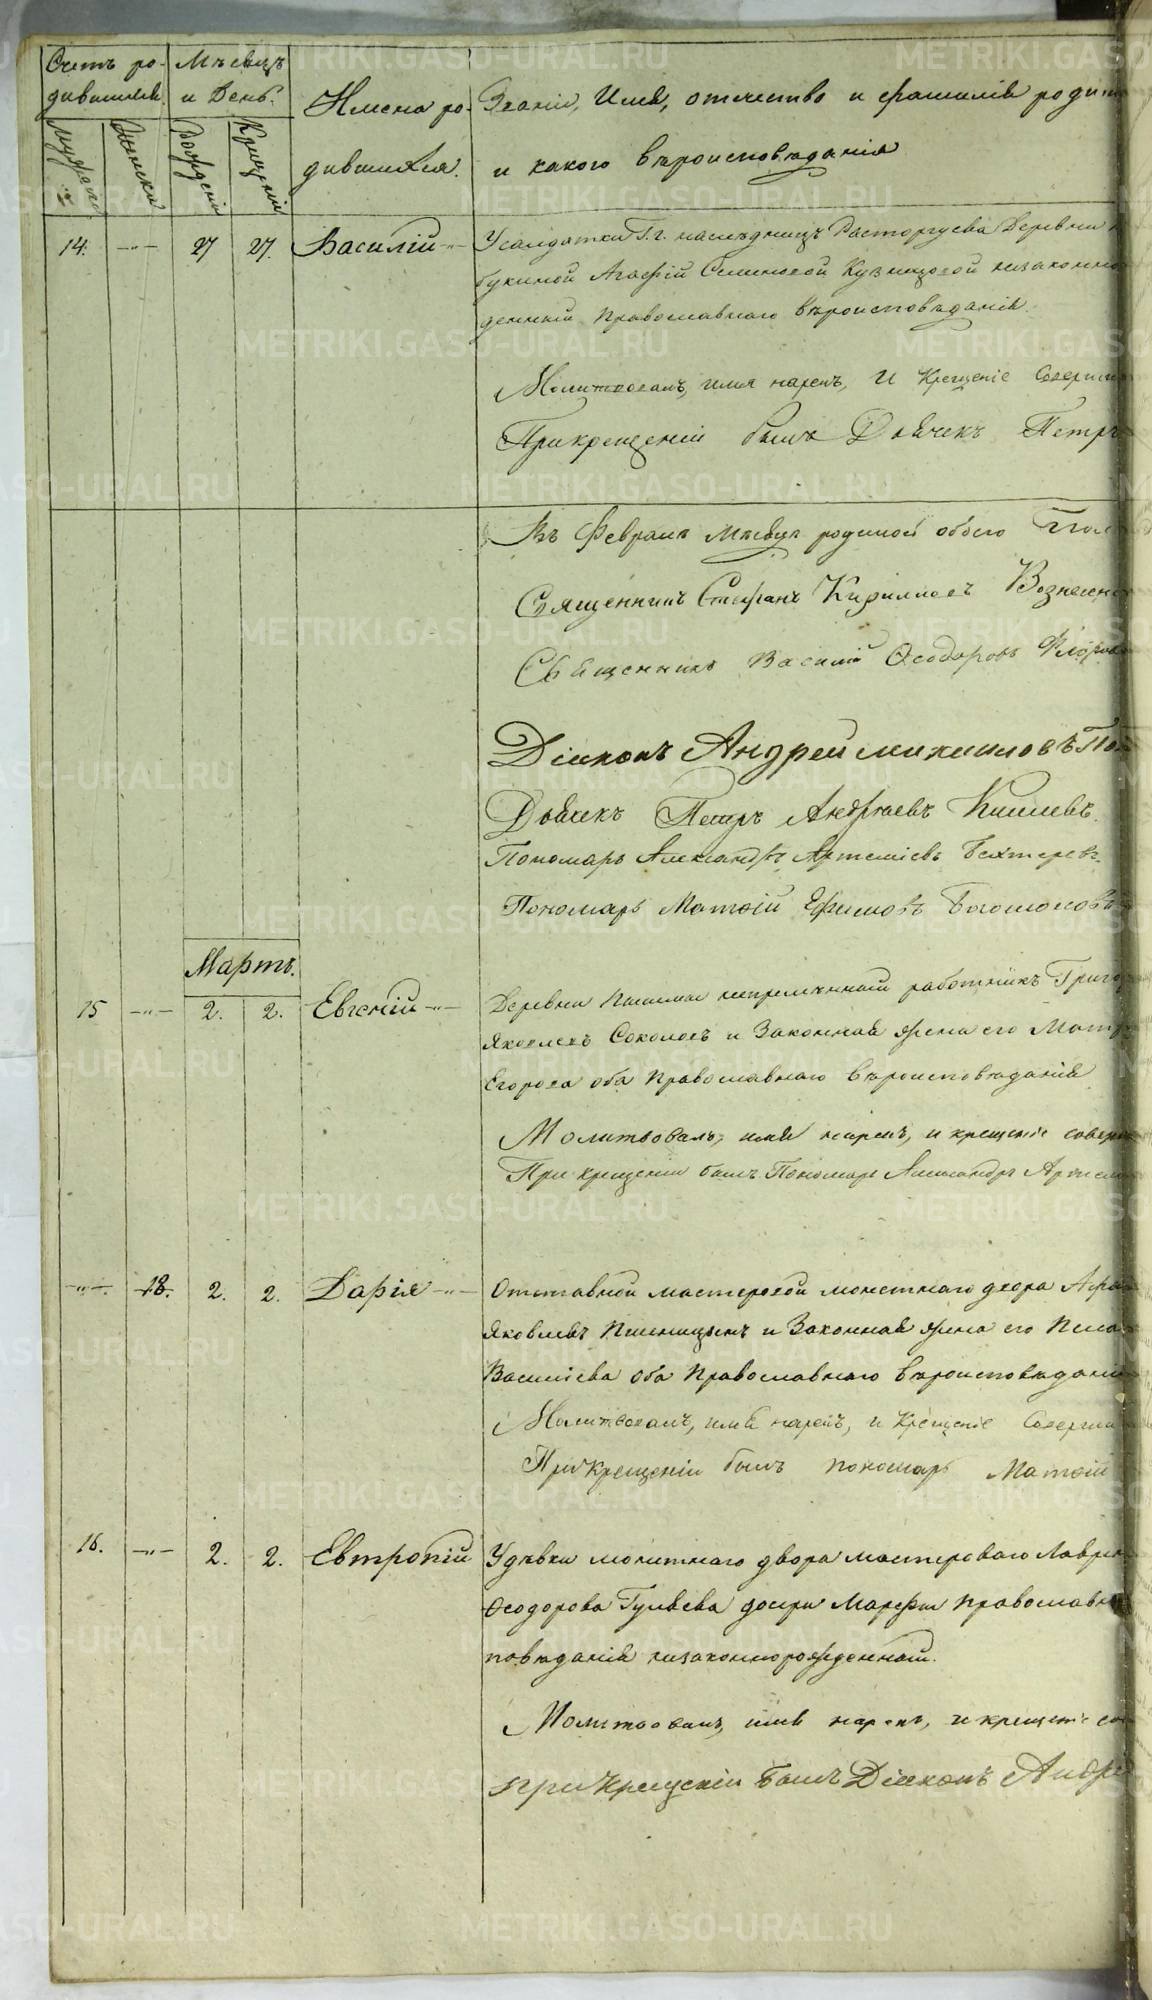 Счетъ ро-
дившихся.
Мѣсецъ
и День.
Имена ро-
дившихся.
Званіе, Имя, отчество и фамилія родит
и какого вѣроисповѣданія
Мужеска
Женска
Рожденія
Крещенія
14. —„— 27 27. Василій —„— Усолдатки Г.г. наслѣдницъ Расторгуева Деревни
букиной Агафіи Семеновой Кузнецовой незаконно
денный Православнаго вѣроисповѣданія.
Молитвовалъ, имя нарекъ, и Крещеніе Соверши
Прикрещеніи былъ Дьячекъ Петръ
Въ Февралѣ Мѣсяцѣ родимой обоего
Священникъ Стефанъ Кириловъ Вознесен
Священникъ Василій Ѳеодоровъ Флоров
Діаконъ Андрей михаиловъ По
Дьячекъ Петръ Андреевъ Киселевъ.
Пономарь Александръ Артеміевъ Бехтеревъ.
Пономарь Матѳій Ефимовъ Богомоловъ
Мартъ.
15 —„— 2. 2. Евгеній —„— Деревни непремѣнный работникъ Григо
Яковлевъ Соколовъ и Законная жена его Матр
Егорова оба Православнаго вѣроисповѣданія
Молитвовалъ, имя нарекъ, и крещеніе соверш
При крещеніи былъ Пономарь Александръ Артем
—„—. 18. 2. 2. Дарія —„— Отставной мастеровой монетнаго двора
Яковлевъ Пшеницынъ и Законная жена его Пела
Василіева оба Православнаго вѣроисповѣдані
Молитвовалъ, имя нарекъ, и Крещеніе Соверши
При Крещеніи былъ пономарь Матѳій
16. —„— 2. 2. Евтропій Удѣвки монетнаго двора мастероваго Лавре
Ѳеодорова Гуляева дочери Марфы Православн
повѣданія незаконнорожденный.
Молитвовалъ, имя нарекъ, и крещеніе со
при Крещеніи былъ Діаконъ Андре
METRIKI.GASO-URAL.RU